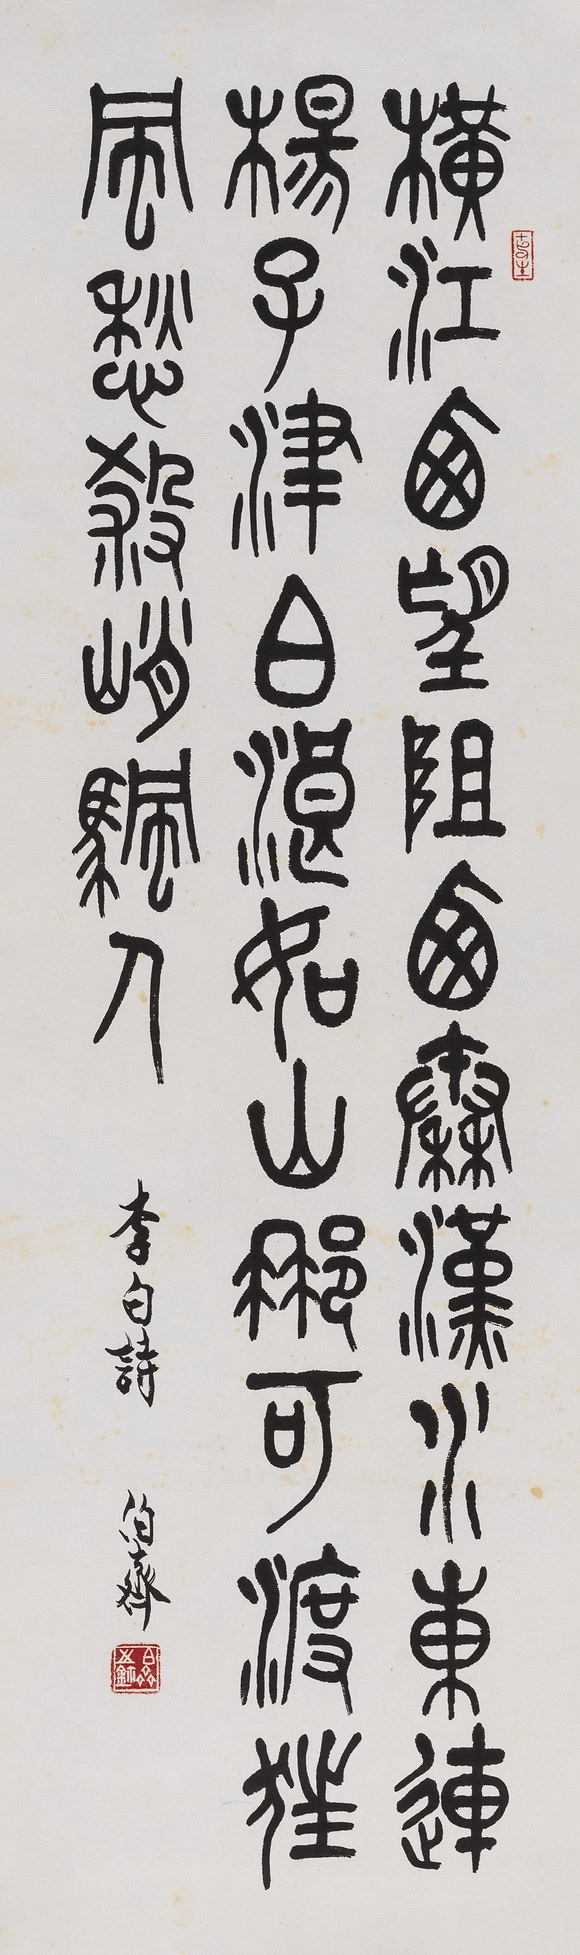 橫江西望阻西秦漢水東連
楊子津白浪如山那可渡狂
風愁殺峭颿人
李白詩